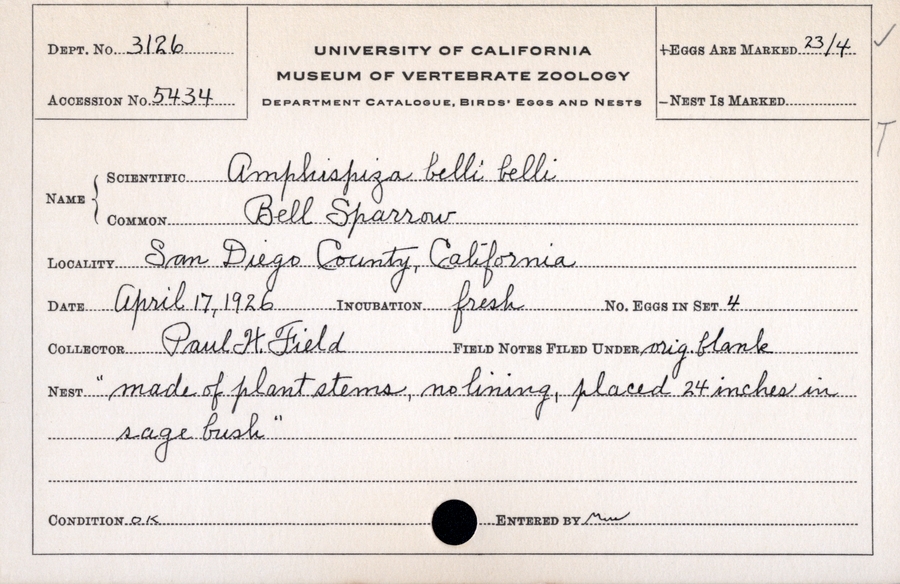 Dept. No. 3126
Accession No. 5434
UNIVERSITY OF CALIFORNIA
MUSEUM OF VERTEBRATE ZOOLOGY
Department Catalogue, Birds' Eggs and Nests
+Eggs Are Marked 23/4
–Nest Is Marked
Name { Scientific Amphispiza belli belli
Common Bell Sparrow
Locality San Diego County, California
Date April 17, 1926 Incubation fresh No. Eggs in Set 4
Collector Paul H. Field Field Notes Filed Under orig. blank
Nest "made of plant stems, no lining, placed 24 inches in
sage bush"
Condition OK Entered by